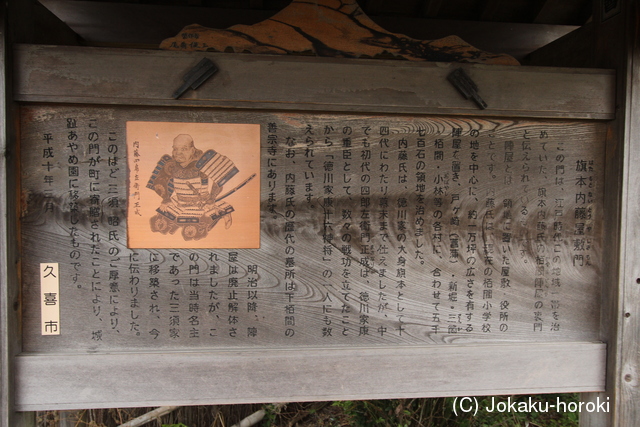 旗本内藤屋敷門
この門は、江戸時代この地域一帯を治
めていた、旗本内藤氏の栢間陣屋の裏門
と伝えられています。
陣屋
領地に置いた屋敷、役所の
ことです。
藤氏は、現在の栢間小学校
の地を中心に、約一万坪の広さを有する
陣屋を置き、戸ヶ崎（菖蒲）・新堀・三箇
栢間・小林等の各村に、合わせて五千
七百石の領地を治めました。
内藤氏は、徳川家の大身旗本として十
四代にわたり幕末まで仕えましたが、中
でも初代の四郎左衛門正成は、徳川家康
の重臣として、数々の戦功を立てたこと
から「徳川家康十六神将」の一人にも数
えられています。
なお、内藤氏の歴代の墓所は下栢間の
善宗寺にあります。
明治以降、陣
屋は廃止解体さ
れましたが、こ
の門は当時名主
であった三須家
に移築され、今
に伝わりました。
このほど三須
氏のご厚意により、
この門が町に寄贈されたことにより、城
趾あやめ園に移築したものです。
平成十年三
内藤四郎左衛門正成
久喜市
(C) Jokaku-horoki